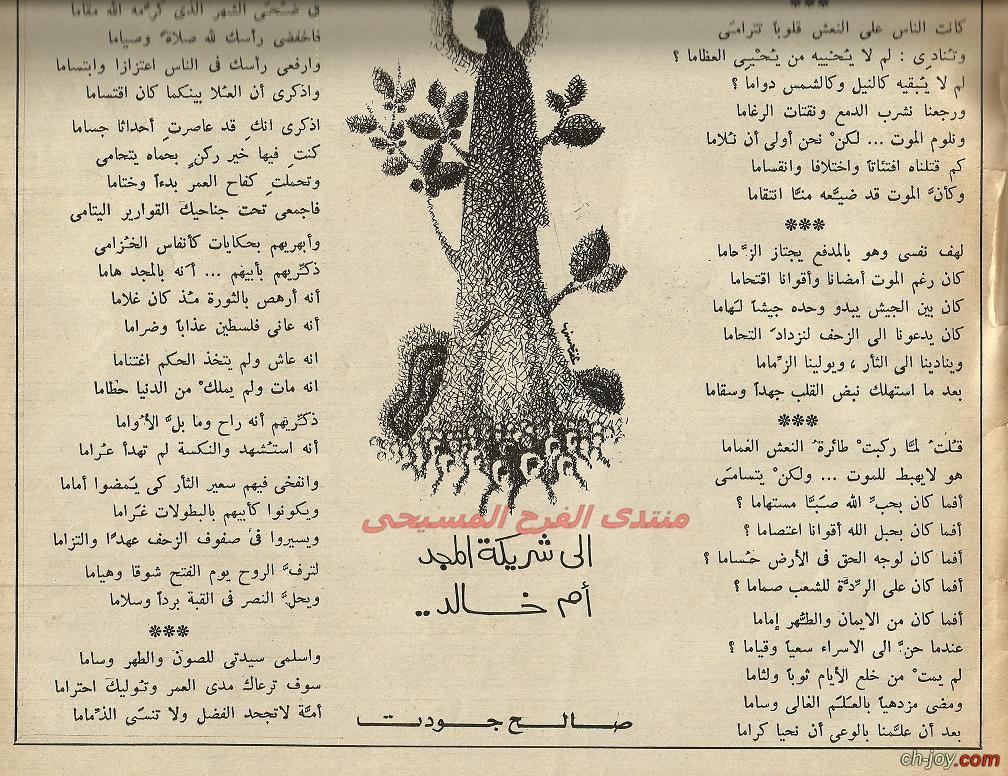 ***
كانت الناس على النعش قلوباً تترامى
وتنادى : لم لا يُحييه من يُحْيِى العظاما ؟
لم لا يُبقيه كالنيل وكالشمس دواما ؟
ورجعنا نشرب الدمع ونقتات الرغاما
ونلوم الموت ... لكنْ نحن أولى أن نُلاما
كم قتلناه افتئاتاً واختلافا وانقساما
وكأنَّ الموت قد ضيَّعه منَّا انتقاما
***
لهف نفسى وهو بالمدفع يجتاز الزَّحاما
كان رغم الموت أمضانا وأقوانا اقتحاما
كان بين الجيش يبدو وحده جيشاً لُهاما
كان يدعونا الى الزحف لنزدادَ التحاما
وينادينا الى الثأر ، ويولينا الزِّماما
بعد ما استهلك نبض القلب جهداً وسقاما
***
قُلتُ لمَّا ركبتْ طائرةُ النعش الغماما
هو لايهبط للموت ... ولكنْ يتسامَى
أفما كان بحبِّ الله صَبَّا مستهاما ؟
أفما كان بحبل الله أقوانا اعتصاما ؟
أفما كان لوجه الحق فى الأرض حُساما ؟
أفما كان على الرِّدَّة للشعب صماما ؟
أفما كان من الايمان والطُّهر إماما
عندما حنَّ الى الاسراء سعياً وقياما ؟
لم يمتْ من خلع الأيام ثوباً ولثاما
ومضى مزدهياً بالعَلَم الغالى وساما
بعد أن علَّمنا بالوعى أن نحيا كراما
فى ضُحَى الشهر الذى كرَّمه الله مقاما
فاخفضى رأسك لله صلاة وصياما
وارفعى رأسك فى الناس اعتزازا وابتساما
واذكرى أن العُلا بينكما كان اقتساما
اذكرى انكِ قد عاصرتِ أحداثا جساما
كنتِ فيها خير ركنٍ بحماه يتحامى
وتحملتِ كفاح العمر بدءاً وختاما
فاجمعى تحت جناحيك القوارير اليتامى
وأبهريهم بحكايات كأنفاس الخُزامى
ذكِّريهم بأبيهم ... أنه بالمجد هاما
أنه أرهص بالثورة مُذ كان غلاما
أنه عانى فلسطين عذاباً وضراما
انه عاش ولم يتخذ الحكم اغتناما
انه مات ولم يملكْ من الدنيا حُطاما
ذكِّريهم أنه راح وما بلَّ الأُواما
أنه استُشهد والنكسة لم تهدأ عُراما
وانفخى فيهم سعير الثأر كى يَمضوا أماما
ويكونوا كأبيهم بالبطولات غَراما
ويسيروا فى صفوف الزحف عهداً والتزاما
لترفَّ الروح يوم الفتح شوقا وهياما
ويحلَّ النصر فى القبة برداً وسلاما
***
واسلمى سيدتى للصون والطهر وساما
سوف ترعاك مدى العمر وتُوليك احتراما
أمَّة لاتجحد الفضل ولا تنسَى الذِّماما
منتدى الفرح المسيحى
الى شريكة المجد
أم خالد ..
صالح جودت
ch-joy.com